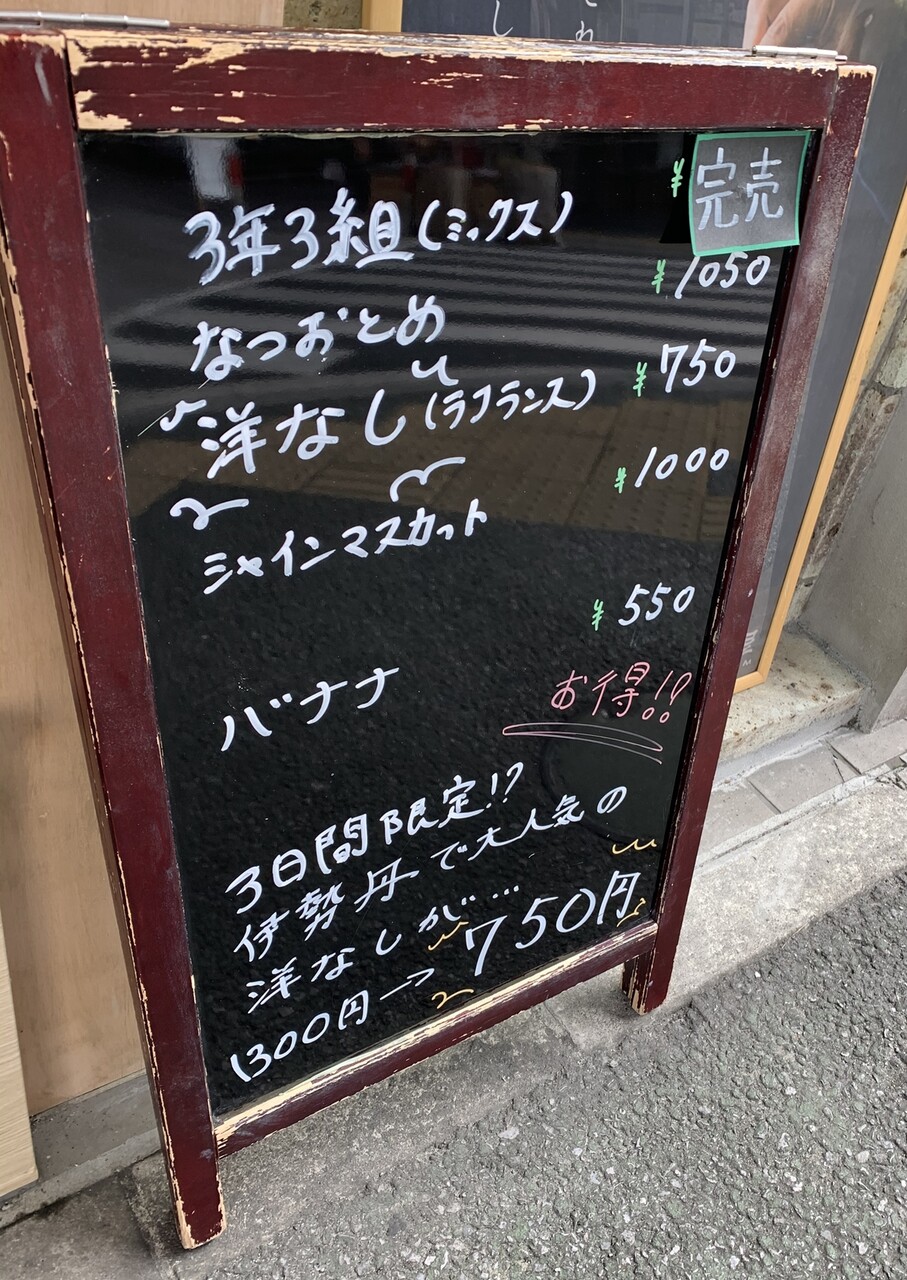 3年3組(ミックス) ¥ 完売
なつおとめ ¥1050
洋なし(ラフランス) ¥750
シャインマスカット ¥1000
バナナ ¥550
お得!!
3日間限定!?
伊勢丹で大人気の
洋なしが……
1300円→750円